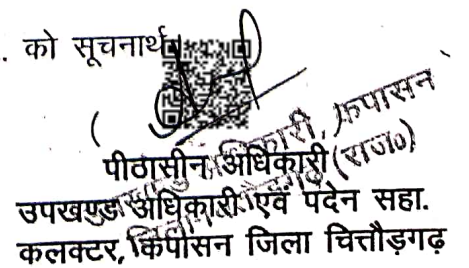 . को सूचनार्थ
( )
पीठासीन अधिकारी
उपखण्ड अधिकारी एवं पदेन सहा.
कलक्टर, कपासन जिला चित्तौड़गढ़
अधिकारी, कपासन
(राज०)